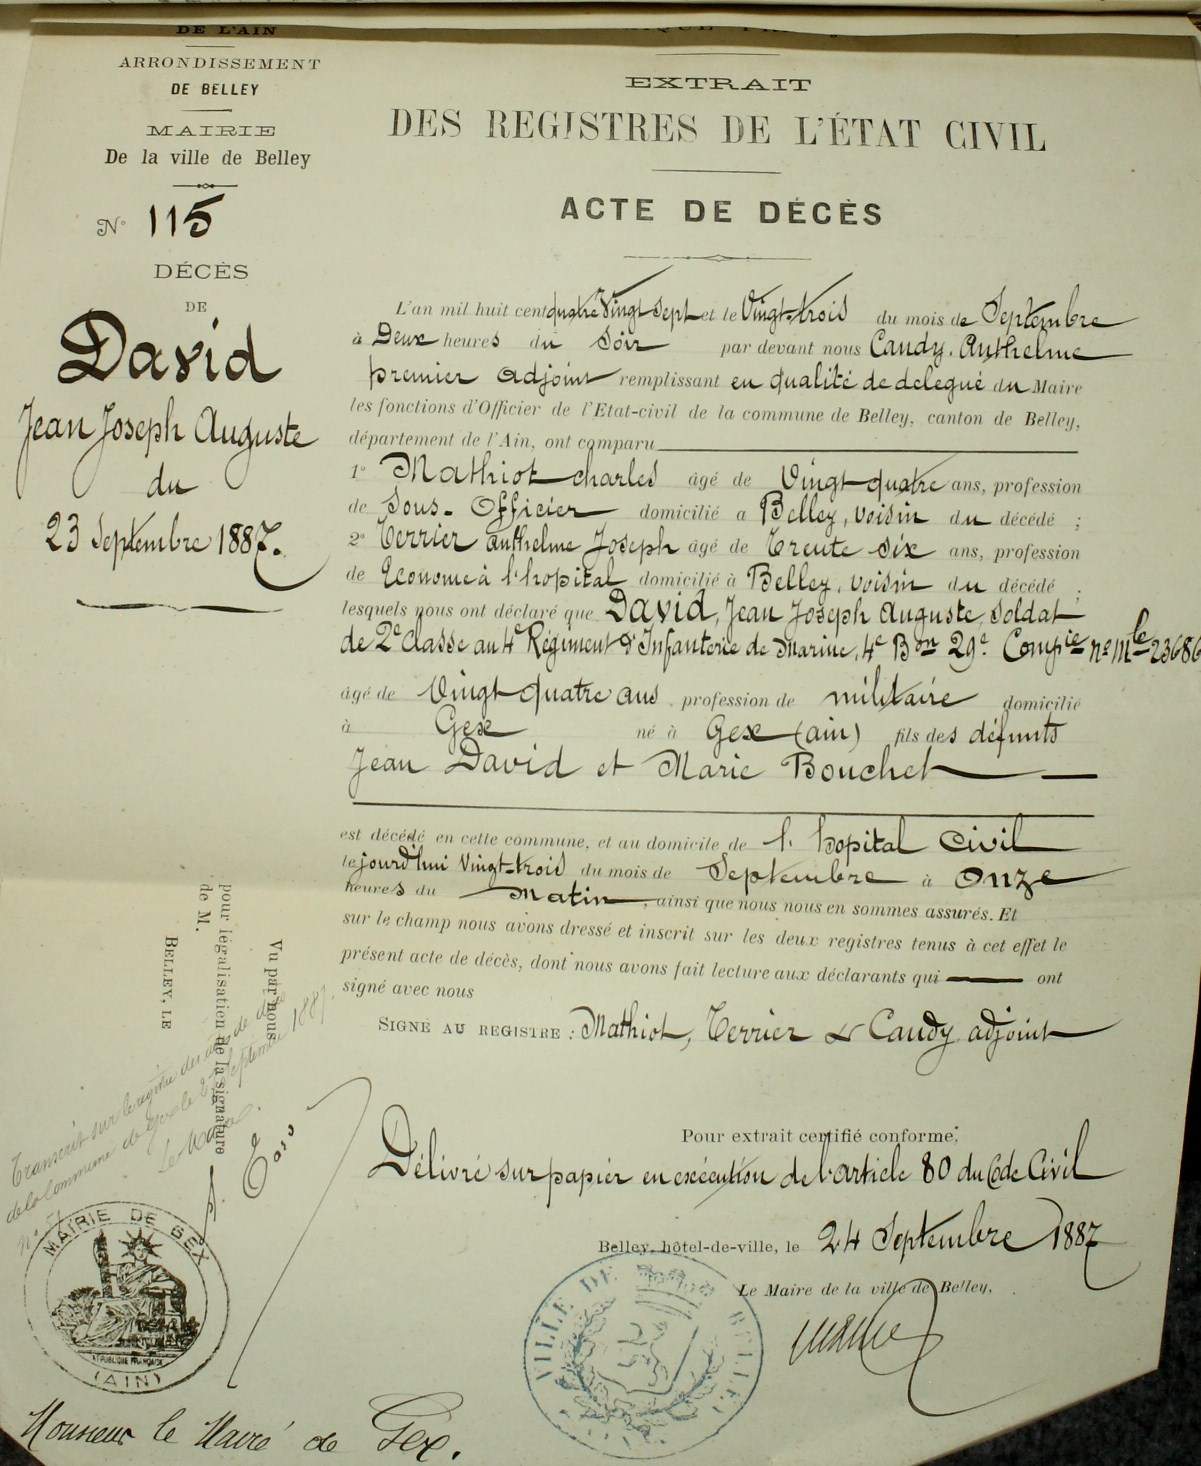 DE L'AIN
ARRONDISSEMENT
DE BELLEY
MAIRIE
De la ville de Belley
N° 115
DÉCÈS
DE
David
Jean Joseph Auguste
du
23 Septembre 1887.
EXTRAIT
DES REGISTRES DE L'ÉTAT CIVIL
ACTE DE DÉCÈS
L'an mil huit cent quatre Vingt sept et le Vingt-trois du mois de Septembre
à Deux heures du Soir par devant nous Candy, Anthelme
premier adjoint remplissant en qualité de delegué du Maire
les fonctions d'Officier de l'Etat-civil de la commune de Belley, canton de Belley,
département de l'Ain, ont comparu
1° Mathiot Charles âgé de Vingt quatre ans, profession
de Sous-Officier domicilié a Belley, voisin du décédé ;
2° Terrier anthelme Joseph âgé de Trente six ans, profession
de Econome à l'hopital domicilié à Belley, voisin du décédé ;
lesquels nous ont déclaré que David, Jean Joseph Auguste, Soldat
de 2e classe au 4e Régiment d'Infanterie de Marine, 4e Bon 29e Compie no Mle 23686
âgé de Vingt quatre ans profession de militaire domicilié
à Gex né à Gex (ain) fils des défunts
Jean David et Marie Bouchet
est décédé en cette commune, et au domicile de l'hopital Civil
le jourd'hui Vingt-trois du mois de Septembre à Onze
heures du Matin, ainsi que nous nous en sommes assurés. Et
sur le champ nous avons dressé et inscrit sur les deux registres tenus à cet effet le
présent acte de décès, dont nous avons fait lecture aux déclarants qui ont
signé avec nous
SIGNÉ AU REGISTRE : Mathiot, Terrier & Candy adjoint
Pour extrait certifié conforme,
Délivré sur papier en exécution de l'article 80 du Code Civil
Belley, hôtel-de-ville, le 24 Septembre 1887
Le Maire de la ville de Belley,
VILLE DE BELLEY
Vu par nous
pour légalisation de la signature
de M.
BELLEY, LE
Transcrit sur le registre des actes de décès
de la Commune de Gex le 27 Septembre 1887.
Le Maire
MAIRIE DE GEX
RÉPUBLIQUE FRANÇAISE
(AIN)
Monsieur le Maire de Gex.